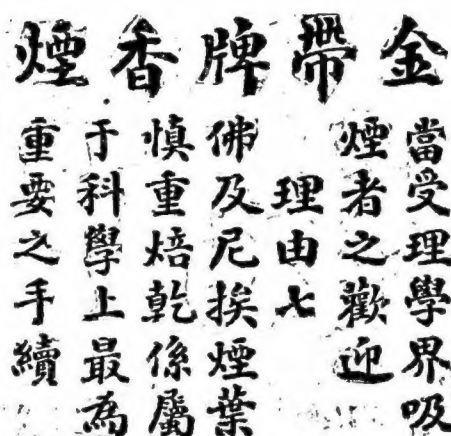 金帶牌香煙
當受理學界吸
煙者之歡迎
理由七
佛及尼挨煙葉
慎重焙乾係屬
于科學上最為
重要之手續